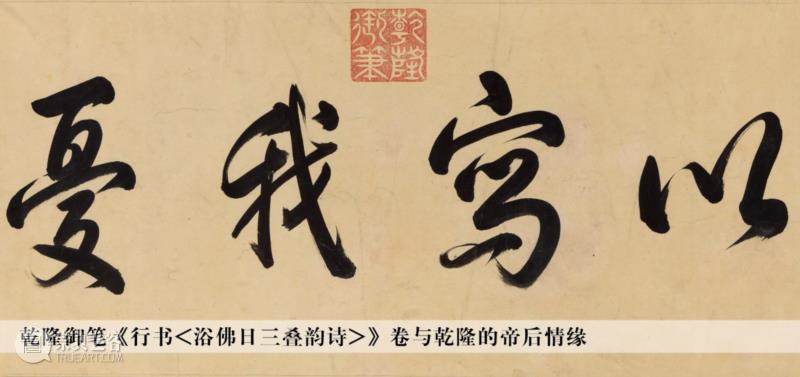 乾隆御筆
以写我憂
乾隆御笔《行书<浴佛日三叠韵诗>》卷与乾隆的帝后情缘
TRUEART.COM